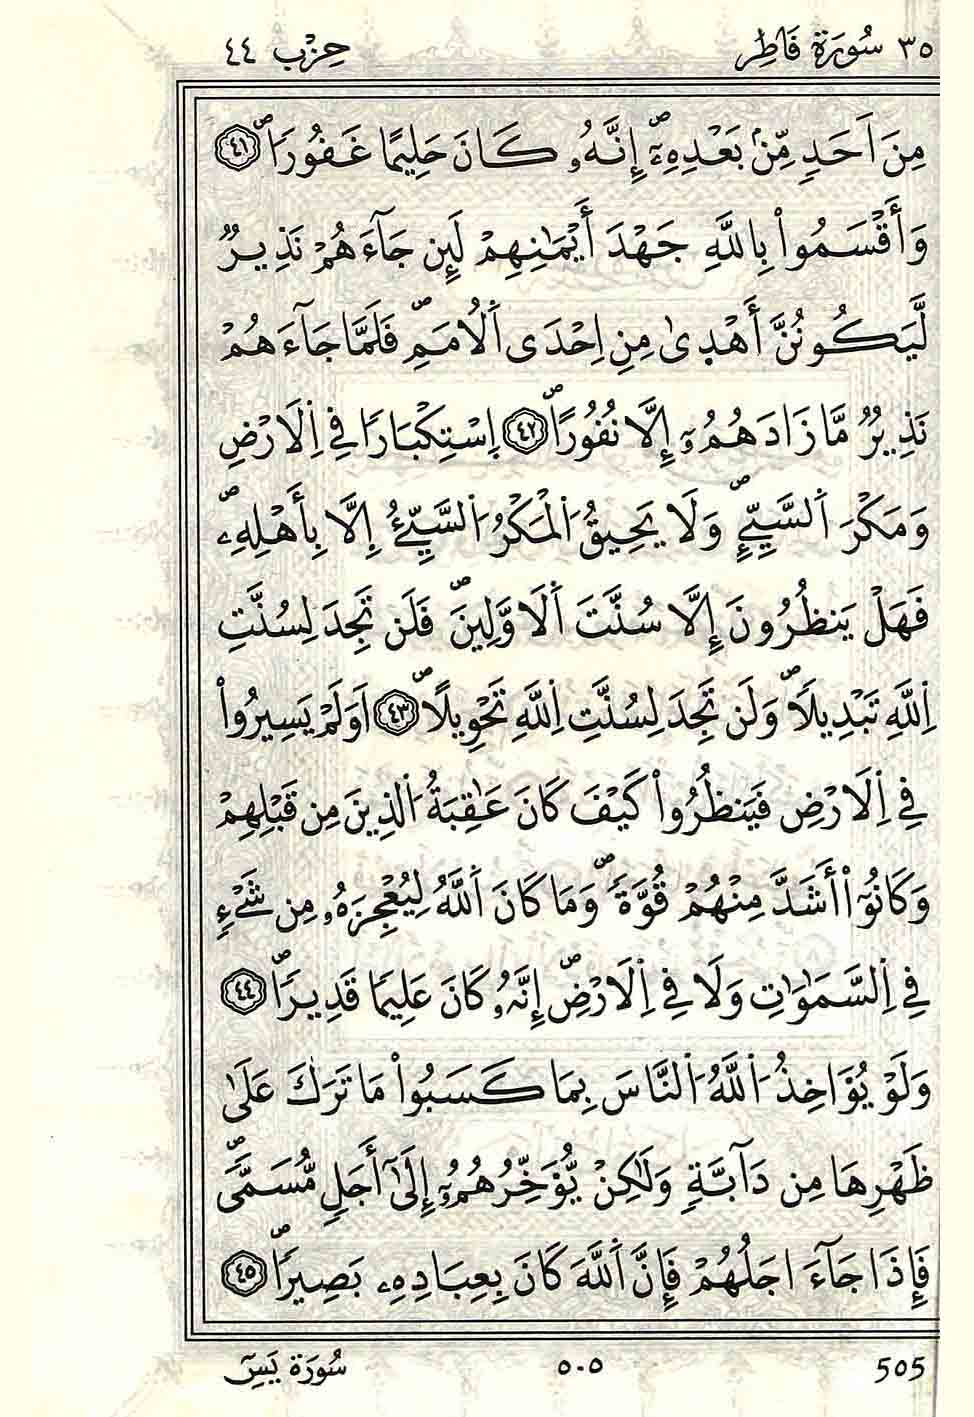 ٣٥ سُورَةُ فَاطِرٍ حِزْب ٤٤
مِنَ اَحَدٍ مِّنۢ بَعْدِهِۦٓۖ إِنَّهُۥ كَانَ حَلِيمًا غَفُورًاۖ ٤١
وَأَقْسَمُواْ بِاللَّهِ جَهْدَ أَيْمَٰنِهِمْ لَئِن جَآءَهُمْ نَذِيرٌ
لَّيَكُونُنَّ أَهْدٜىٰ مِنِ اِحْدَى اَ۬لُامَمِۖ فَلَمَّا جَآءَهُمْ
نَذِيرٌ مَّا زَادَهُمُۥٓ إِلَّا نُفُورًاۖ ٤٢ اِ۪سْتِكْبَارًا فِے اِ۬لَارْضِ
وَمَكْرَ اَ۬لسَّيِّےِٕۖ وَلَا يَحِيقُ اُ۬لْمَكْرُ اُ۬لسَّيِّئُ إِلَّا بِأَهْلِهِۦۖ
فَهَلْ يَنظُرُونَ إِلَّا سُنَّتَ اَ۬لَاوَّلِينَۖ فَلَن تَجِدَ لِسُنَّتِ
اِ۬للَّهِ تَبْدِيلًاۖ وَلَن تَجِدَ لِسُنَّتِ اِ۬للَّهِ تَحْوِيلًاۖ ٤٣ اَوَلَمْ يَسِيرُواْ
فِے اِ۬لَارْضِ فَيَنظُرُواْ كَيْفَ كَانَ عَٰقِبَةُ اُ۬لذِينَ مِن قَبْلِهِمْ
وَكَانُوٓاْ أَشَدَّ مِنْهُمْ قُوَّةًۖ وَمَا كَانَ اَ۬للَّهُ لِيُعْجِزَهُۥ مِن شَےْءٍ
فِے اِ۬لسَّمَٰوَٰتِ وَلَا فِے اِ۬لَارْضِۖ إِنَّهُۥ كَانَ عَلِيمًا قَدِيرًاۖ ٤٤
وَلَوْ يُؤَاخِذُ اُ۬للَّهُ اُ۬لنَّاسَ بِمَا كَسَبُواْ مَا تَرَكَ عَلَىٰ
ظَهْرِهَا مِن دَآبَّةٍ وَلَٰكِنْ يُّؤَخِّرُهُمُۥٓ إِلَىٰٓ أَجَلٍ مُّسَمّيًۖ
فَإِذَا جَآءَ اجَلُهُمْ فَإِنَّ اَ۬للَّهَ كَانَ بِعِبَادِهِۦ بَصِيرًاۖ ٤٥
505 ٥٠٥ سُورَةُ يَسٓ